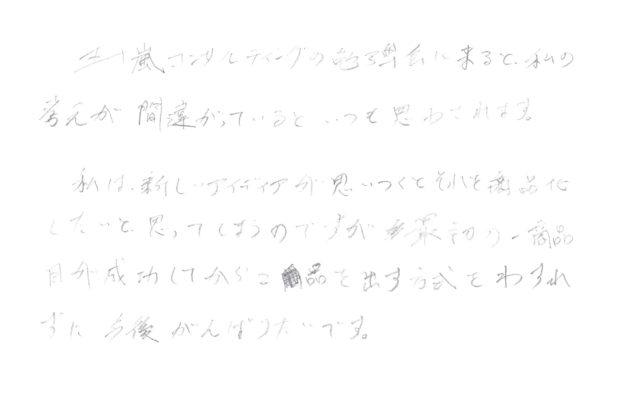 五十嵐コンサルティングの勉強会に来ると、私の
考えが間違がっているといつも思わされます。
私は、新しいアイディアが思いつくとそれを商品化
したいと、思ってしまうのですが 最初の一商品
目が成功してから二商品を出す方式をわすれ
ずに 今後がんばりたいです。